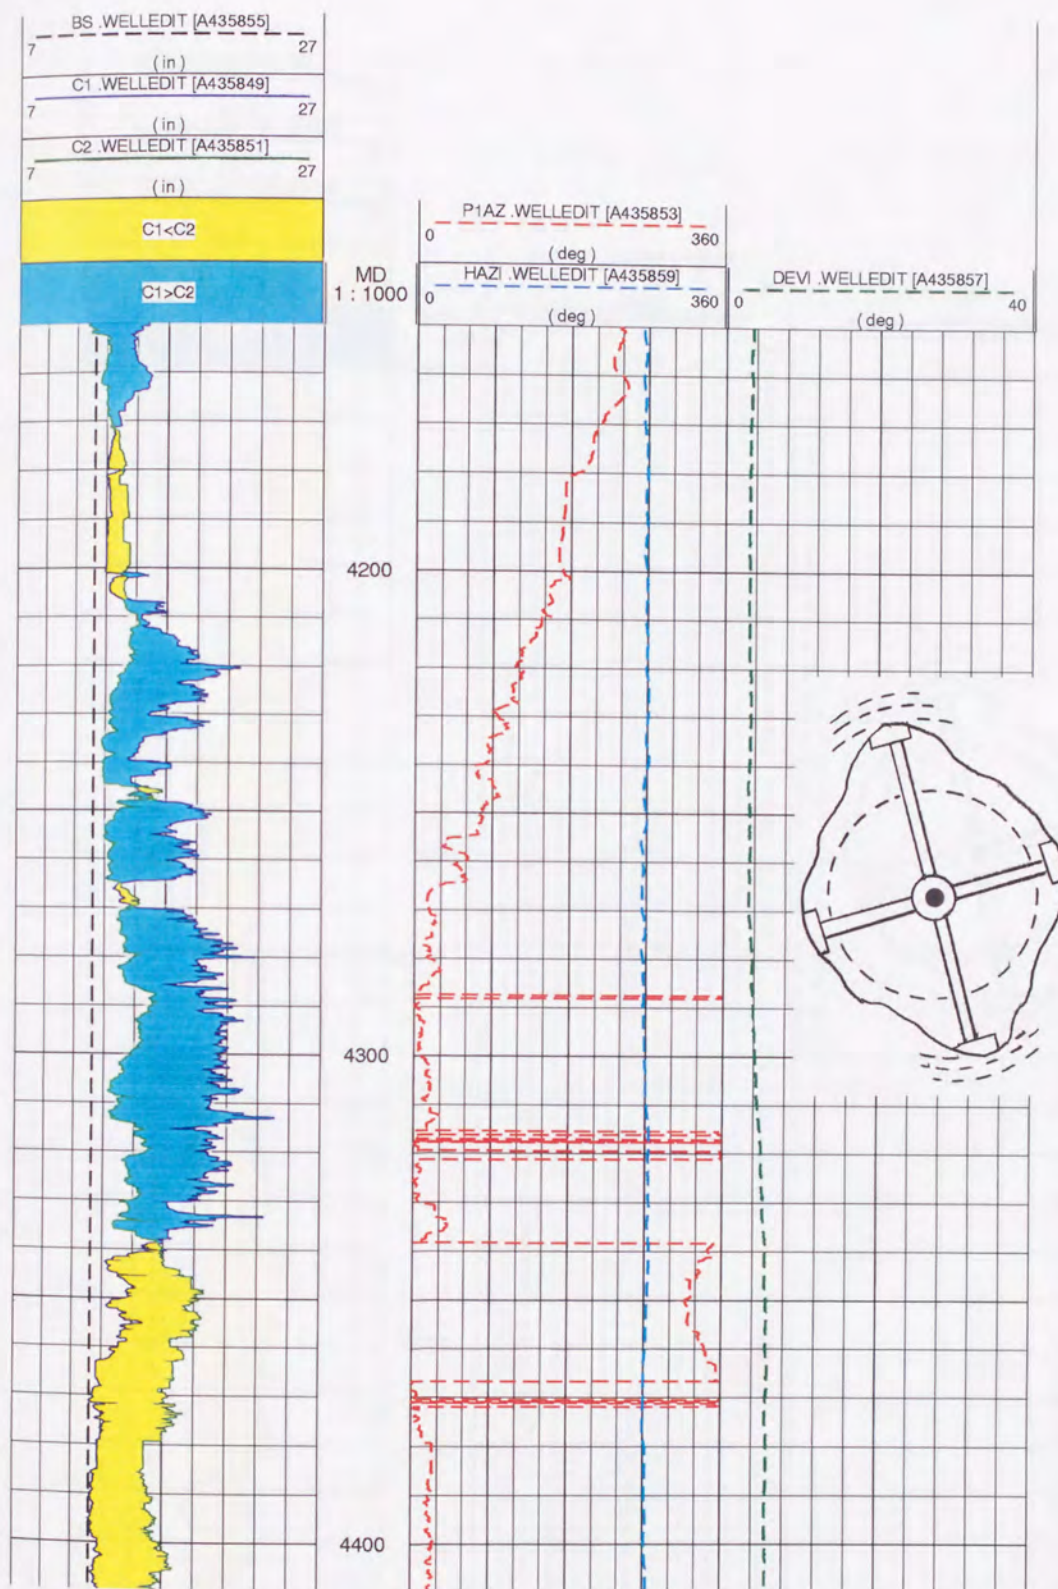 BS .WELLEDIT [A435855]
7 27
(in)
C1 .WELLEDIT [A435849]
7 27
(in)
C2 .WELLEDIT [A435851]
7 27
(in)
C1<C2
C1>C2
MD
1 : 1000
P1AZ .WELLEDIT [A435853]
0 360
(deg)
HAZI .WELLEDIT [A435859]
0 360
(deg)
DEVI .WELLEDIT [A435857]
0 40
(deg)
4200
4300
4400